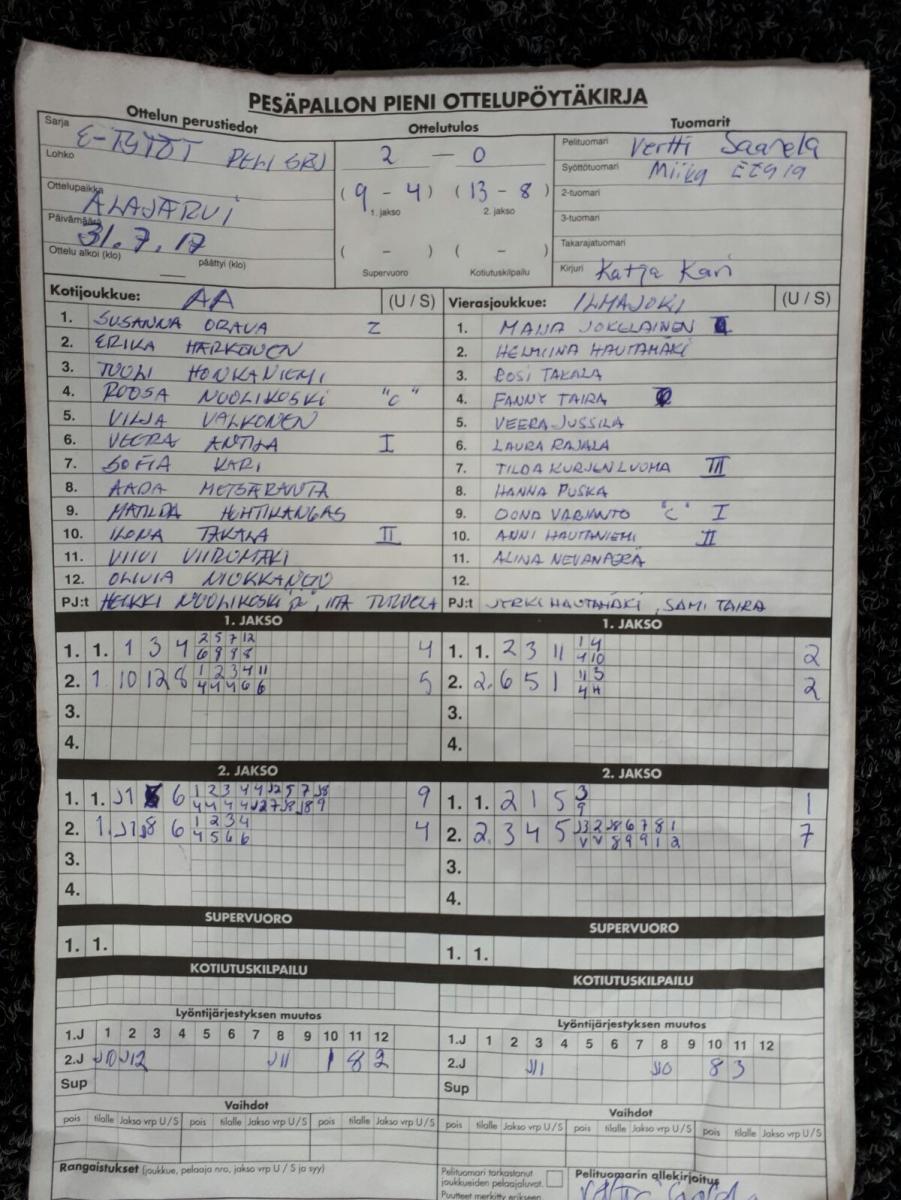 PESÄPALLON PIENI OTTELUPÖYTÄKIRJA
Ottelun perustiedot Ottelutulos Tuomarit
Sarja E-TYTÖT
Lohko
Ottelupaikka ALAJÄRVI
Päivämäärä 31.7.17
Ottelu alkoi (klo) — päättyi (klo)
2 — 0
( 9 - 4 ) ( 13 - 8 )
1. jakso 2. jakso
( - ) ( - )
Supervuoro Kotiutuskilpailu
Pelituomari Vertti Saarela
Syöttötuomari Miika
2-tuomari
3-tuomari
Takarajatuomari
Kirjuri Katja Kari
Kotijoukkue: AA (U / S)
1. SUSANNA ORAVA
2. ERIKA HARKONEN
3. TUULI HONKANIEMI
4. ROOSA NUOLIKOSKI "C"
5. VILJA VALKONEN
6. VEERA ANTILA I
7. SOFIA KARI
8. AADA METSÄRANTA
9. MATILDA HUHTIKANGAS
10. ILONA TAKALA II
11. VIIVI VIIRUMÄKI
12. OLIVIA
PJ:t HEIKKI NUOLIKOSKI
Vierasjoukkue: ILMAJOKI (U / S)
1. MAIJA JOKELAINEN
2. HELMIINA HAUTAMÄKI
3. ROSI TAKALA
4. FANNY TAIRA
5. VEERA JUSSILA
6. LAURA RAJALA
7. TILDA KURJENLUOMA III
8. HANNA PUSKA
9. OONA VARJANTO "C" I
10. ANNI HAUTANIEMI II
11. ALINA NEVANPERÄ
12.
PJ:t JYRKI HAUTAMÄKI, SAMI TAIRA
1. JAKSO
1. 1. 1 3 4 2 5 7 12 4
6 9 8 8
2. 1 10 12 8 1 2 3 4 11 5
4 4 4 6 6
3.
4.
1. JAKSO
1. 1. 2 3 11 1 4 2
4 10
2. 2. 6 5 1 2
3.
4.
2. JAKSO
1. 1. 6 9
2. 1. 6 1 2 3 4 4
4 5 6 6
3.
4.
2. JAKSO
1. 1. 2 1 5 3 1
9
2. 2. 3 4 5 7
3.
4.
SUPERVUORO
1. 1.
SUPERVUORO
1. 1.
KOTIUTUSKILPAILU
KOTIUTUSKILPAILU
Lyöntijärjestyksen muutos
1.J 1 2 3 4 5 6 7 8 9 10 11 12
2.J J10 J12 J11 1 8 2
Sup
Lyöntijärjestyksen muutos
1.J 1 2 3 4 5 6 7 8 9 10 11 12
2.J J1 J0 8 3
Sup
Vaihdot
pois tilalle Jakso vrp U / S pois tilalle Jakso vrp U / S pois tilalle Jakso vrp U / S
Vaihdot
pois tilalle Jakso vrp U / S pois tilalle Jakso vrp U / S pois tilalle Jakso vrp U / S
Rangaistukset (joukkue, pelaaja nro, jakso vrp U / S ja syy)
Pelituomari tarkastanut
joukkueiden pelaajaluvat.
Puutteet merkitty erikseen
Pelituomarin allekirjoitus